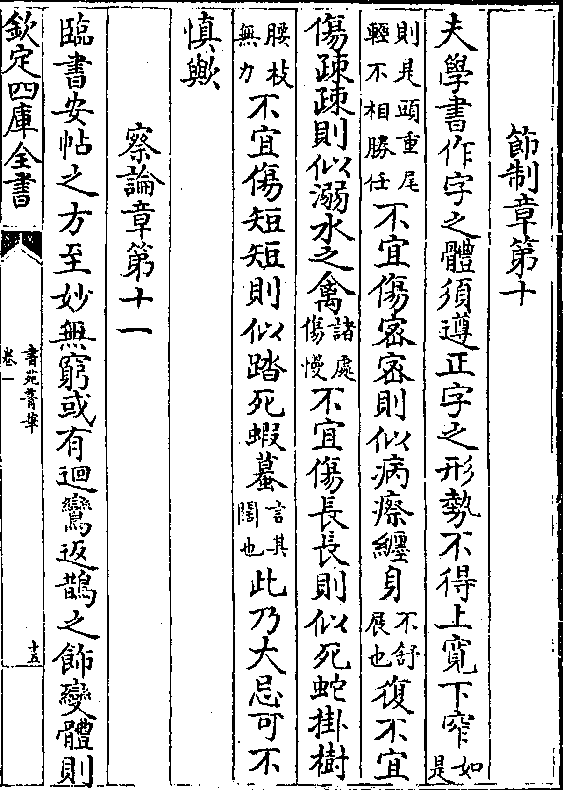 節制章第十
夫學書作字之體須遵正字之形勢不得上寛下窄如是
則是頭重尾輕不相勝任不宜傷宻宻則似病瘵纒身不舒展也復不宜
傷疎疎則似溺水之禽諸處傷慢不宜傷長長則似死蛇掛樹
腰枝無力不宜傷短短則似踏死蝦蟇言其闊也此乃大忌可不
慎歟
察論章第十一
臨書安帖之方至妙無窮或有迴鸞返鵲之飾變體則
欽定四庫全書
書苑菁華
卷一
十五